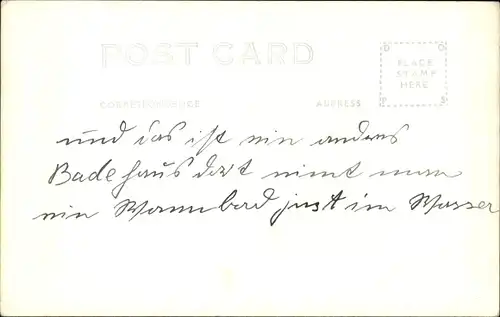 POST CARD
PLACE
STAMP
HERE
CORRESPONDENCE
ADDRESS
und das ist ein anders
Badehaus dort nimt man
ein Wannbad just im Wasser